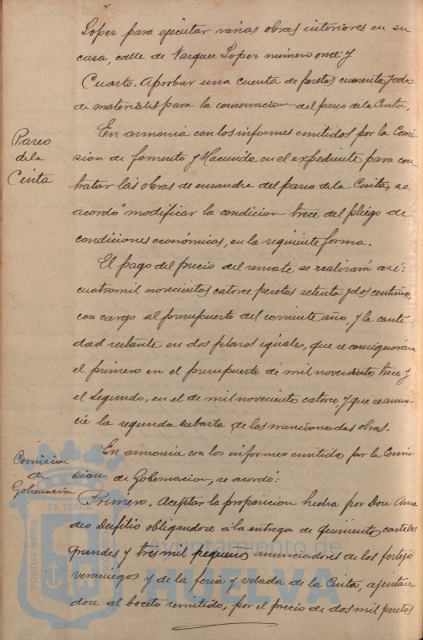 Lopez para ejecutar varias obras interiores en su
casa, calle de Vazquez Lopez número once; y
Cuarto. Aprobar una cuenta de pesetas cuarenta y ocho
de materiales para la conservacion del paseo de la Cinta.
Paseo
de la
Cinta
En armonia con los informes emitidos por la Comi
sion de Fomento y Hacienda en el expediente para con
tratar las obras de ensanche del paseo de la Cinta, se
acordó modificar la condicion trece del pliego de
condiciones económicas, en la siguiente forma.
El pago del precio del remate se realizará así:
cuatromil novecientas catorce pesetas setenta y dos centimos,
con cargo al presupuesto del corriente año, y la canti-
dad restante en dos plazos iguales, que se consignaran
el primero en el presupuesto de mil novecientos trece y
el segundo, en el de mil novecientos catorce y que se anun-
cie la segunda subasta de las mencionadas obras.
Comision
de
Gobernacion
En armonia con los informes emitidos por la Comi
sion de Gobernacion, se acordó:
Primero. Aceptar la proposicion hecha por Don Ama
deo obligandose a la entrega de quinientos carteles
grandes y tres mil pequeños anunciadores de los festejos
veraniegos y de la feria y velada de la Cinta, ajustan-
dose al boceto remitido, por el precio de dos mil pesetas
Ayuntamiento de
HUELVA